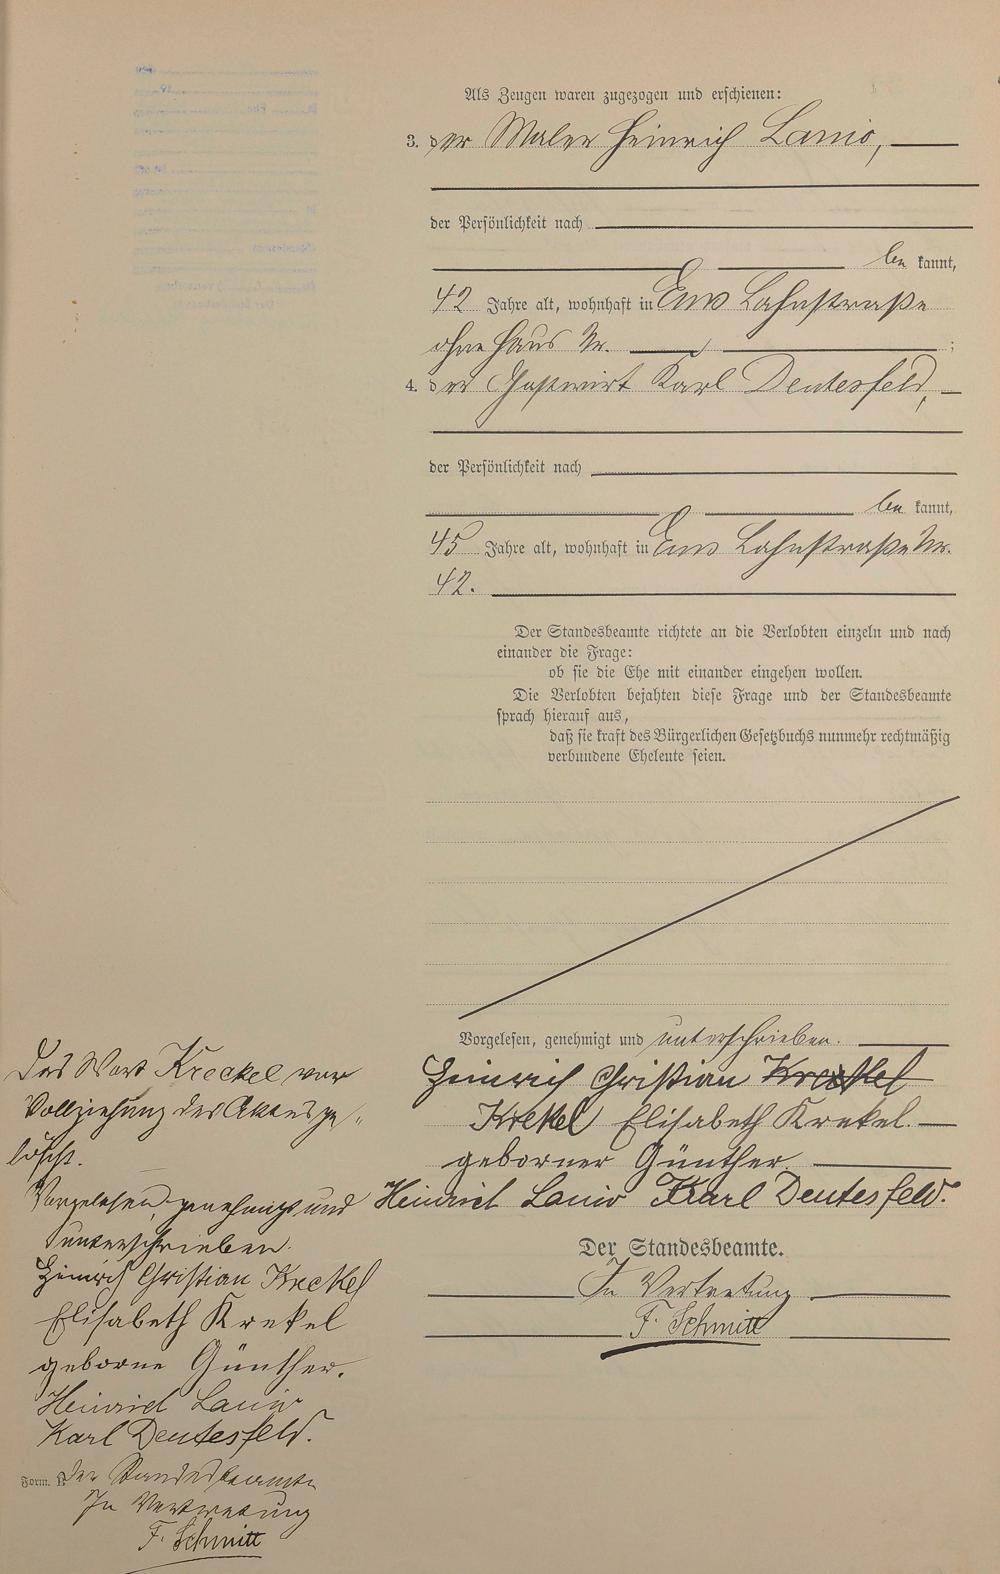 Als Zeugen waren zugezogen und erschienen:
3. der Maler Heinrich Lanio,
der Persönlichkeit nach
be kannt,
42 Jahre alt, wohnhaft in Ems Lahnstraße
ohne Haus Nr. ;
4. der Gastwirt Karl Deutesfeld,
der Persönlichkeit nach
be kannt,
45 Jahre alt, wohnhaft in Ems Lahnstraße Nr.
42.
Der Standesbeamte richtete an die Verlobten einzeln und nach
einander die Frage:
ob sie die Ehe mit einander eingehen wollen.
Die Verlobten bejahten diese Frage und der Standesbeamte
sprach hierauf aus,
daß sie kraft des Bürgerlichen Gesetzbuchs nunmehr rechtmäßig
verbundene Eheleute seien.
Vorgelesen, genehmigt und unterschrieben.
Heinrich Christian Kreckel
Krekel Elisabeth Krekel.
geborner Günther.
Heinrich Lanio Karl Deutesfeld.
Der Standesbeamte.
In Vertretung
F. Schmitt
Das Wort Kreckel vor
Vollziehung des Aktes ge„
löscht.
Vorgelesen, genehmigt und
unterschrieben.
Heinrich Christian Krekel
Elisabeth Krekel
geborne Günther.
Heinrich Lanio
Karl Deutesfeld.
Form. B.
Der Standesbeamte
In Vertretung
F. Schmitt